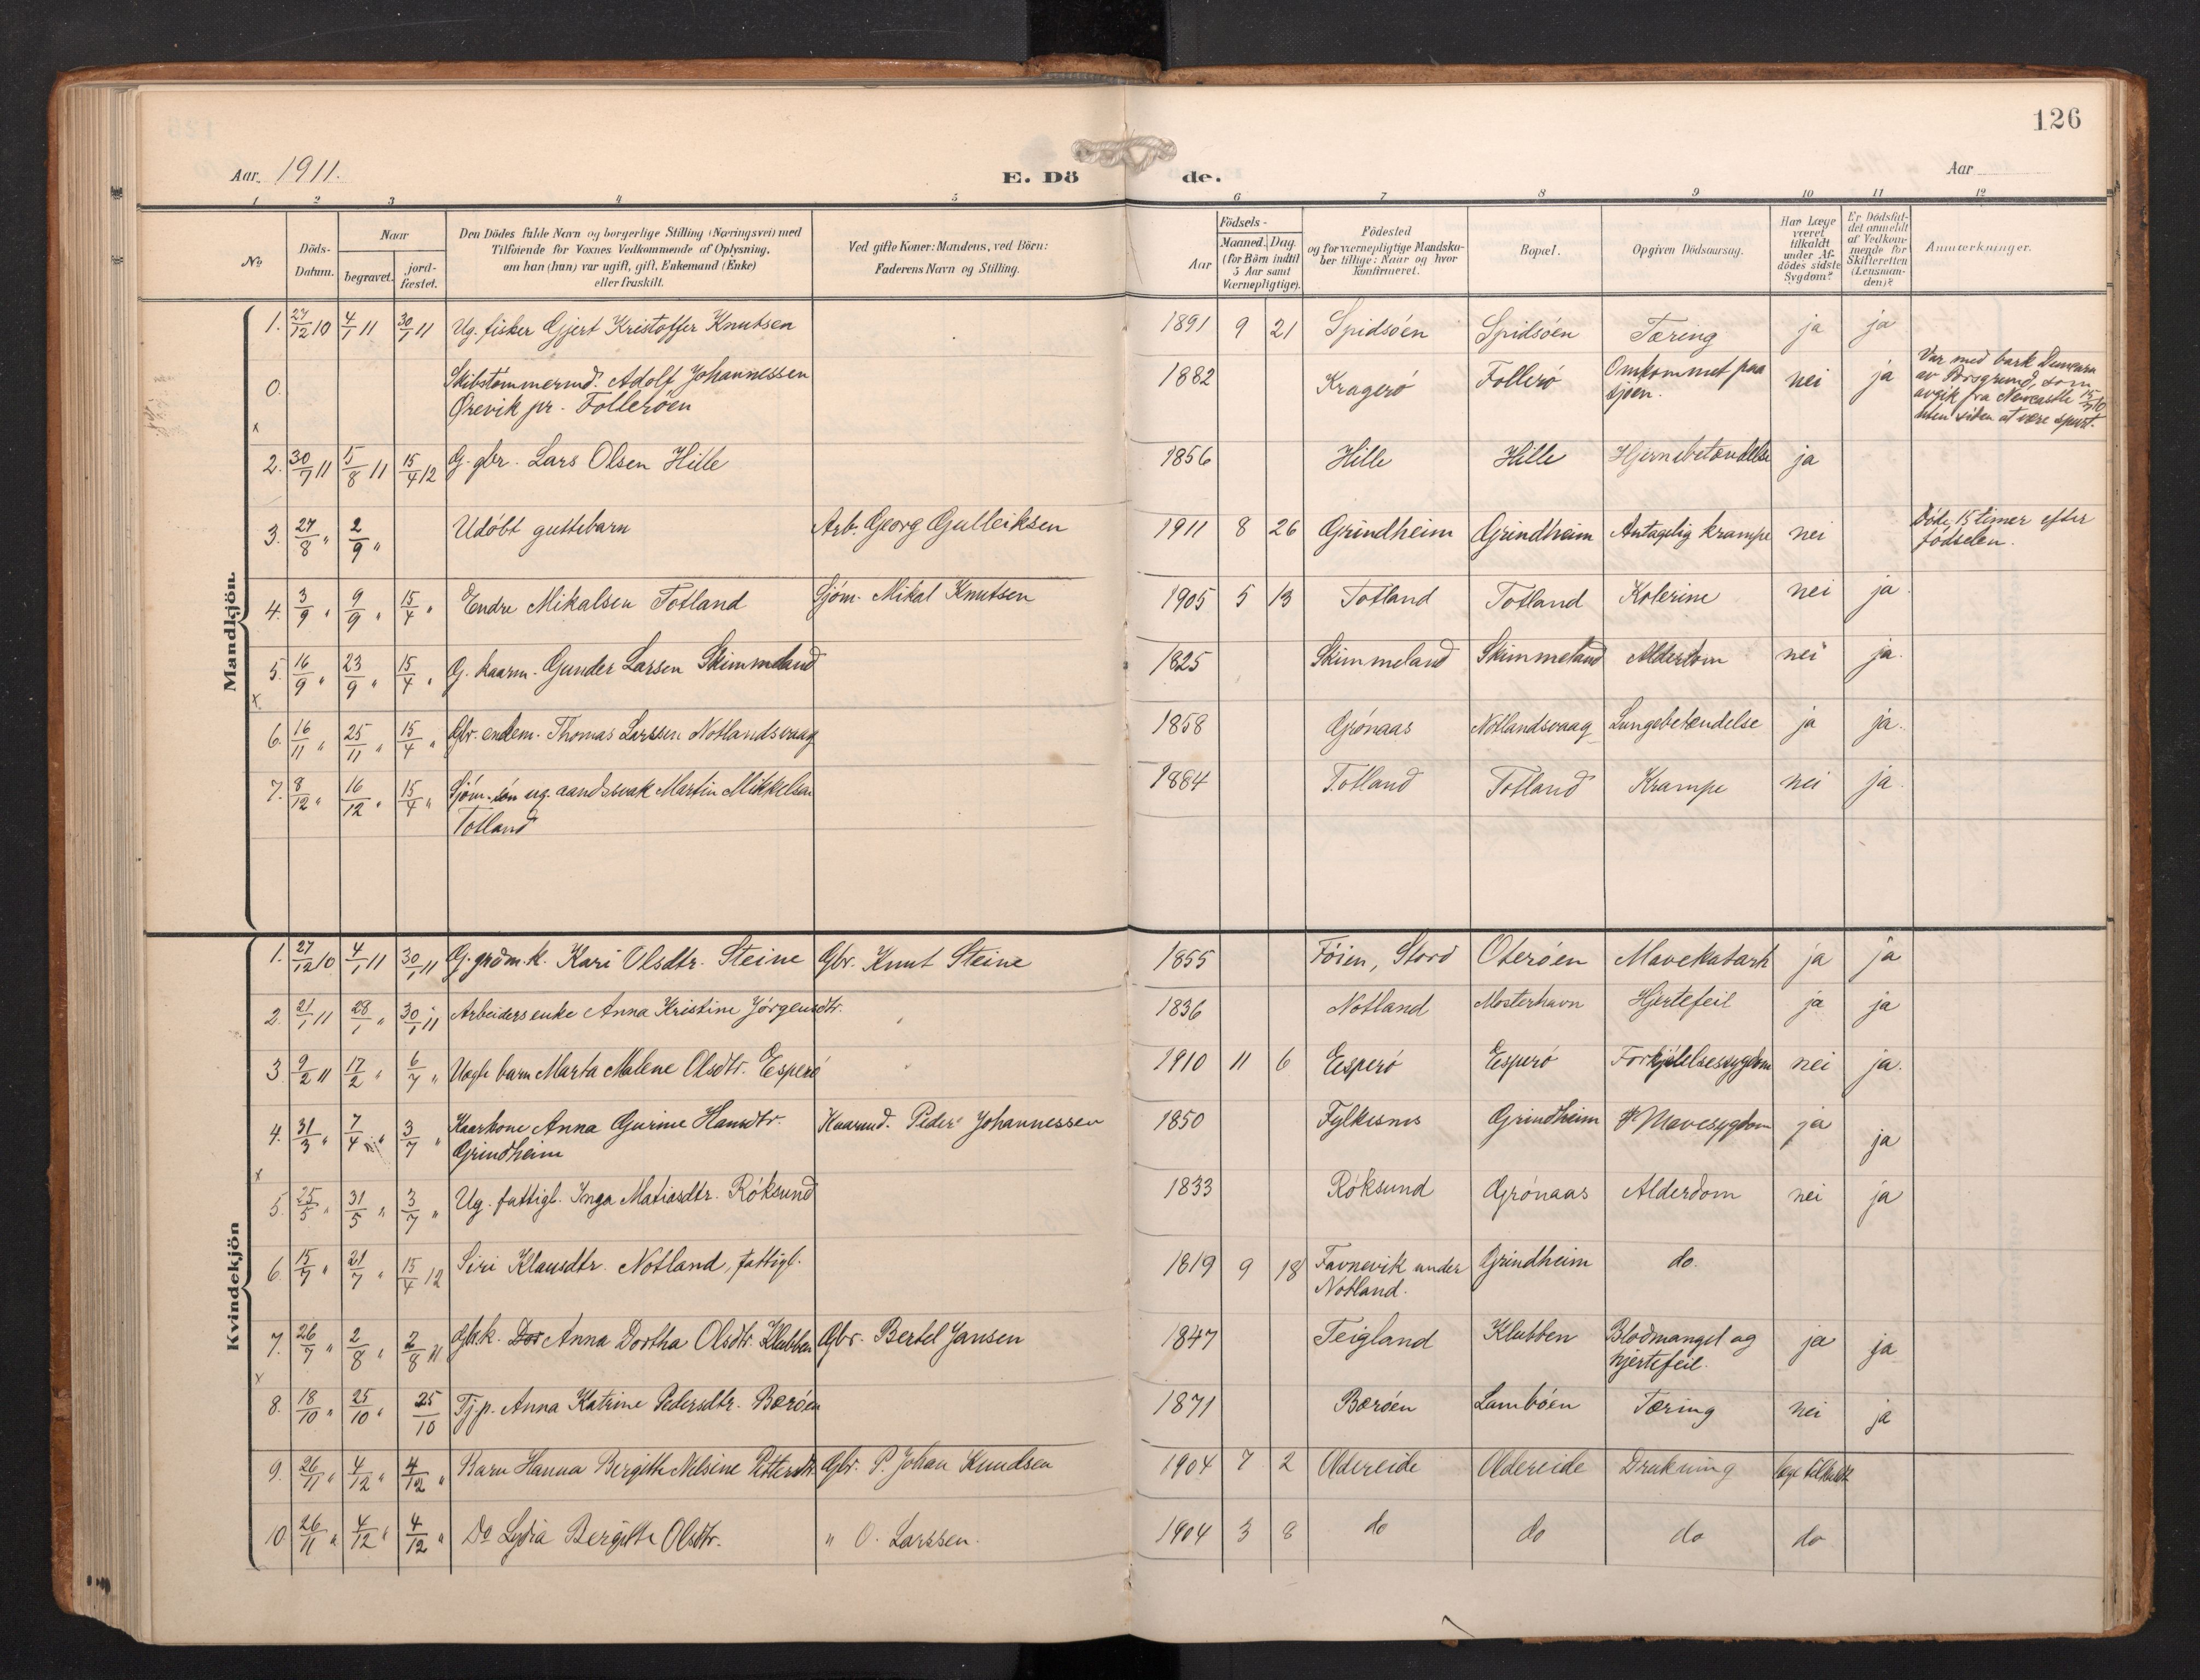 126
Aar 1911.
E. Dö
de.
Aar
1 2 3 4 5 6 7 8 9 10 11 12
No
Döds-Datum.
Naar
begravet.
jord-fæstet.
Den Dödes fulde Navn og borgerlige Stilling (Næringsvei) med
Tilföiende for Voxnes Vedkommende af Oplysning,
om han (hun) var ugift, gift, Enkemand (Enke)
eller fraskilt.
Ved gifte Koner: Mandens, ved Börn:
Faderens Navn og Stilling.
Födsels-
Aar
Maaned. Dag.
(for Börn indtil
5 Aar samt
Værnepligtige).
Födested
og for værnepligtige Mandska-
ber tillige: Naar og hvor
Konfirmeret.
Bopæl.
Opgiven Dödsaarsag.
Har Læge
været
tilkaldt
under Af-
dödes sidste
Sygdom?
Er Dödsfal-
det anmeldt
af Vedkom-
mende for
Skifteretten
(Lensman-
den)?
Anmærkninger.
Mandkjön.
1. 27/12 10 4/1 11 30/1 11 Ug. fisker Gjert Kristoffer Knutsen 1891 9 21 Spidsöen Spidsöen Tæring ja ja
0. Skibstömmermd. Adolf Johannessen 1882 Kragerö Follerö Omkommet paa nei ja Var med bark
Ørevik pr. Folleröen sjöen. av Porsgrund, som
avgik fra Newcastle 15/7 10
uten siden at være spurt.
x
2. 30/7 11 5/8 11 15/4 12 G. gbr. Lars Olsen Hille 1856 Hille Hille Hjernebetændelse ja
3. 27/8 " 2/9 " Udöbt guttebarn Arb. Georg Gulleiksen 1911 8 26 Grindheim Grindheim Antagelig krampe nei Döde 15 timer efter
födselen.
4. 3/9 " 9/9 " 15/4 " Endre Mikalsen Totland Sjöm. Mikal Knutsen 1905 5 13 Totland Totland Kolerine nei ja
5. 16/9 " 23/9 " 15/4 " G. kaarm. Gunder Larsen Skimmeland 1825 Skimmeland Skimmeland Alderdom nei ja.
x
6. 16/11 " 25/11 " 15/4 " Gbr. enkem. Thomas Larssen Notlandsvaag 1858 Grönaas Notlandsvaag Lungebetændelse ja ja.
7. 8/12 " 16/12 " 15/4 " Sjöm. sön ug. aandssvak Martin Mikkelsen 1884 Totland Totland Krampe nei ja.
Totland
Kvindekjön
1. 27/12 10 4/1 11 30/1 11 G. grdm.k. Kari Olsdtr. Steine Gbr. Knut Steine 1855 Föien, Stord Oteröen Mavekatarh ja ja
2. 21/1 11 28/1 " 30/1 11 Arbeidersenke Anna Kristine Jörgensdtr. 1836 Notland Mosterhavn Hjertefeil ja ja
3. 9/2 11 17/2 " 6/7 " Uegte barn Marta Malene Olsdtr. Esperö 1910 11 6 Esperö Esperö Forkjölelsessygdom nei ja.
4. 31/3 " 7/4 " 3/7 " Kaarkone Anna Gurine Hansdtr. Kaarmd. Peder Johannessen 1850 Fylkesnes Grindheim Mavesygdom ja ja
Grindheim
x
5. 25/5 " 31/5 " 3/7 " Ug. fattigl. Inga Matiasdtr. Röksund 1833 Röksund Grönaas Alderdom nei ja
6. 15/7 " 21/7 " 15/4 12 Siri Klausdtr. Notland, fattigl. 1819 9 18 Favnevik under Grindheim do.
Notland.
7. 26/7 " 2/8 " 2/8 11 Gbr.k. Dor Anna Dortha Olsdtr. Klubben Gbr. Bertel Jansen 1847 Teigland Klubben Blodmangel og ja ja
hjertefeil.
x
8. 18/10 " 25/10 " 25/10 Tj.p. Anna Katrine Pedersdtr. Bæröen 1871 Bæröen Lamböen Tæring nei ja
9. 26/11 " 4/12 " 4/12 " Barn Hanna Bergitte Nelsine Pettersdtr. Gbr. P. Johan Knudsen 1904 7 2 Oldereide Oldereide Drukning læge tilkaldt
10 26/11 " 4/12 " 4/12 " Do Lydia Bergitte Olsdtr. " O. Larssen. 1904 3 8 do do do do